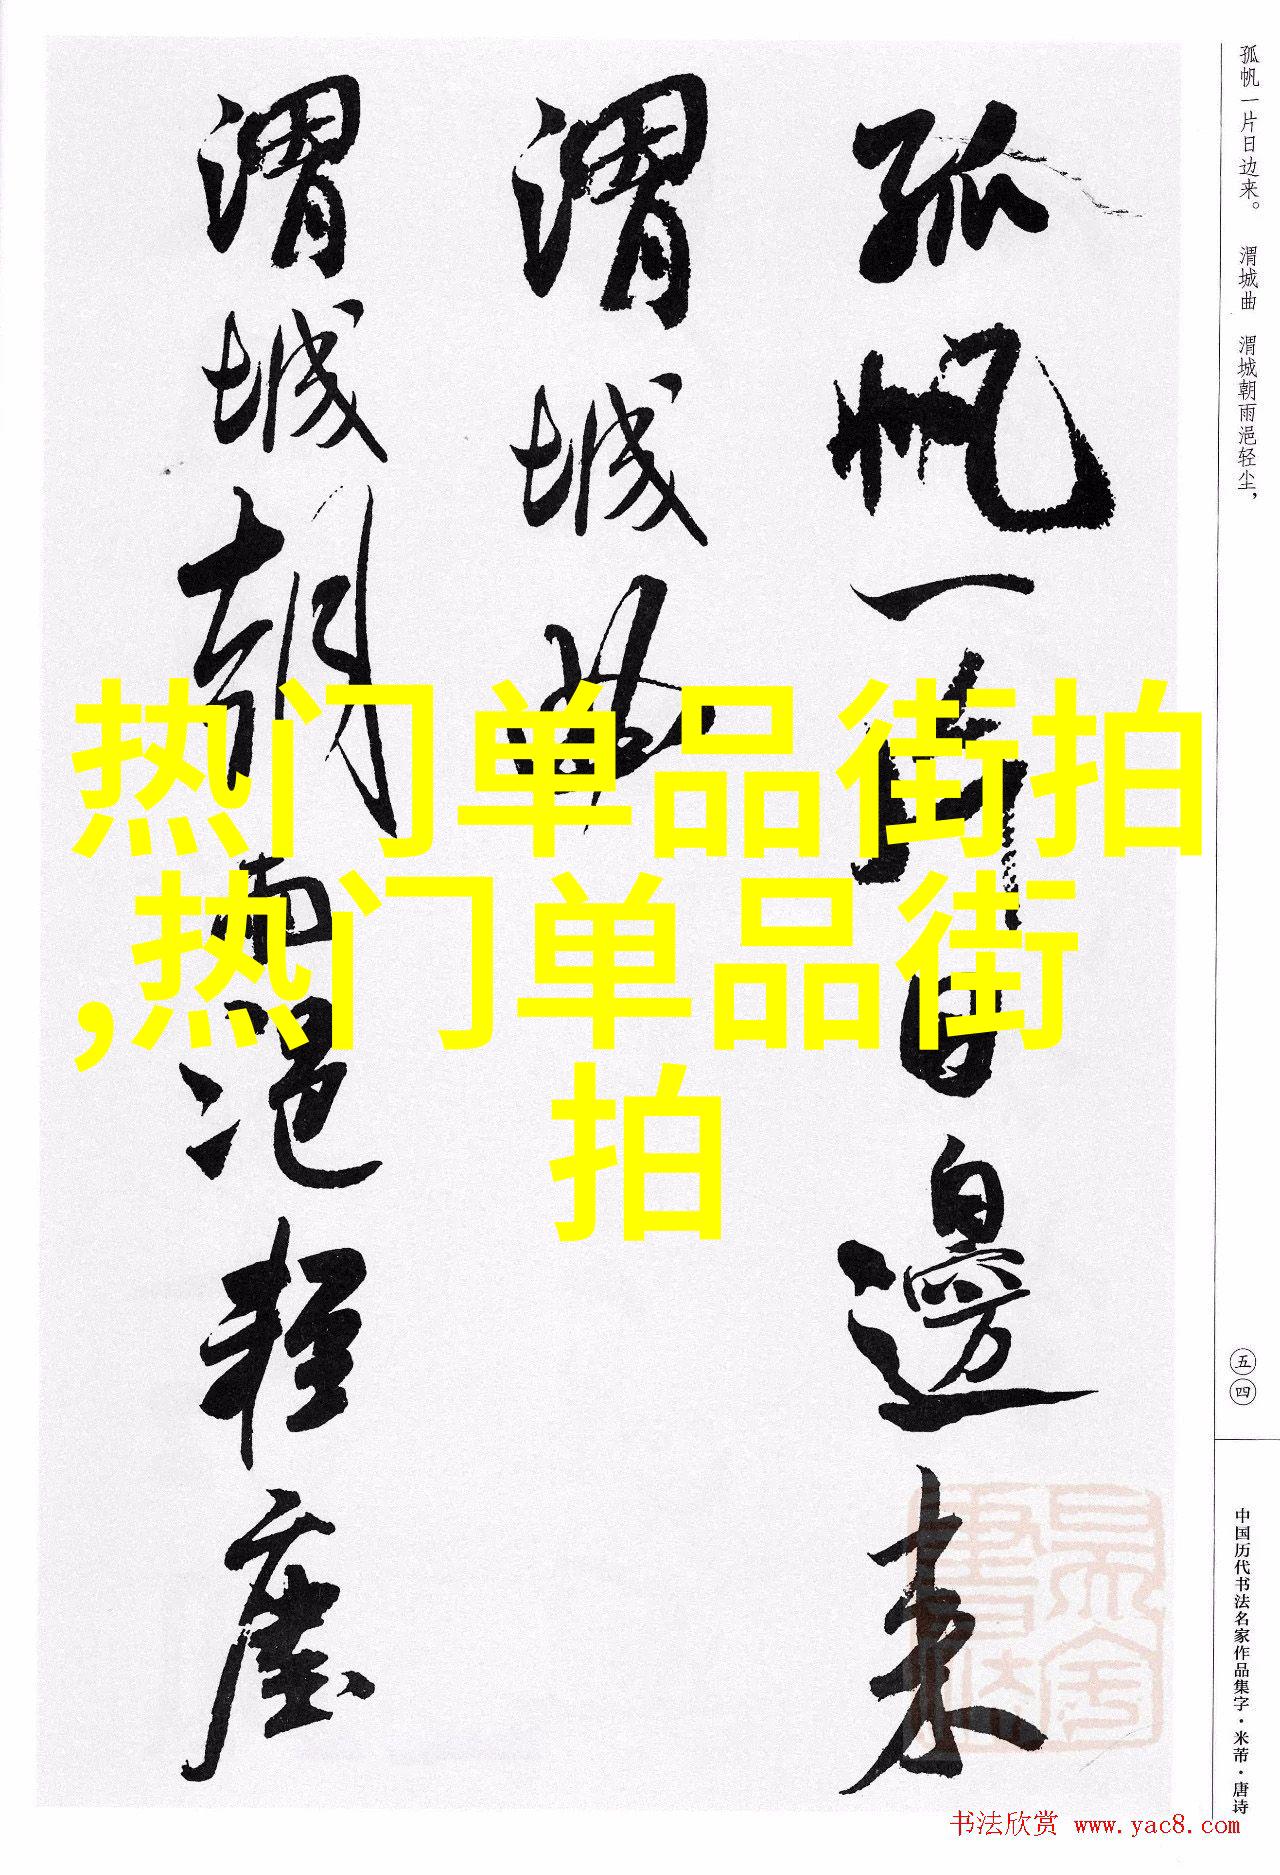 孤帆一片日边来。 渭城曲 渭城朝雨浥轻尘,
孤帆一片日邊来
渭城曲
渭城朝雨浥轻塵
热门单品街拍
,热门单品街
拍
五四
中国历代书法名家作品集字·米芾·唐诗
书法欣赏 www.yac8.com